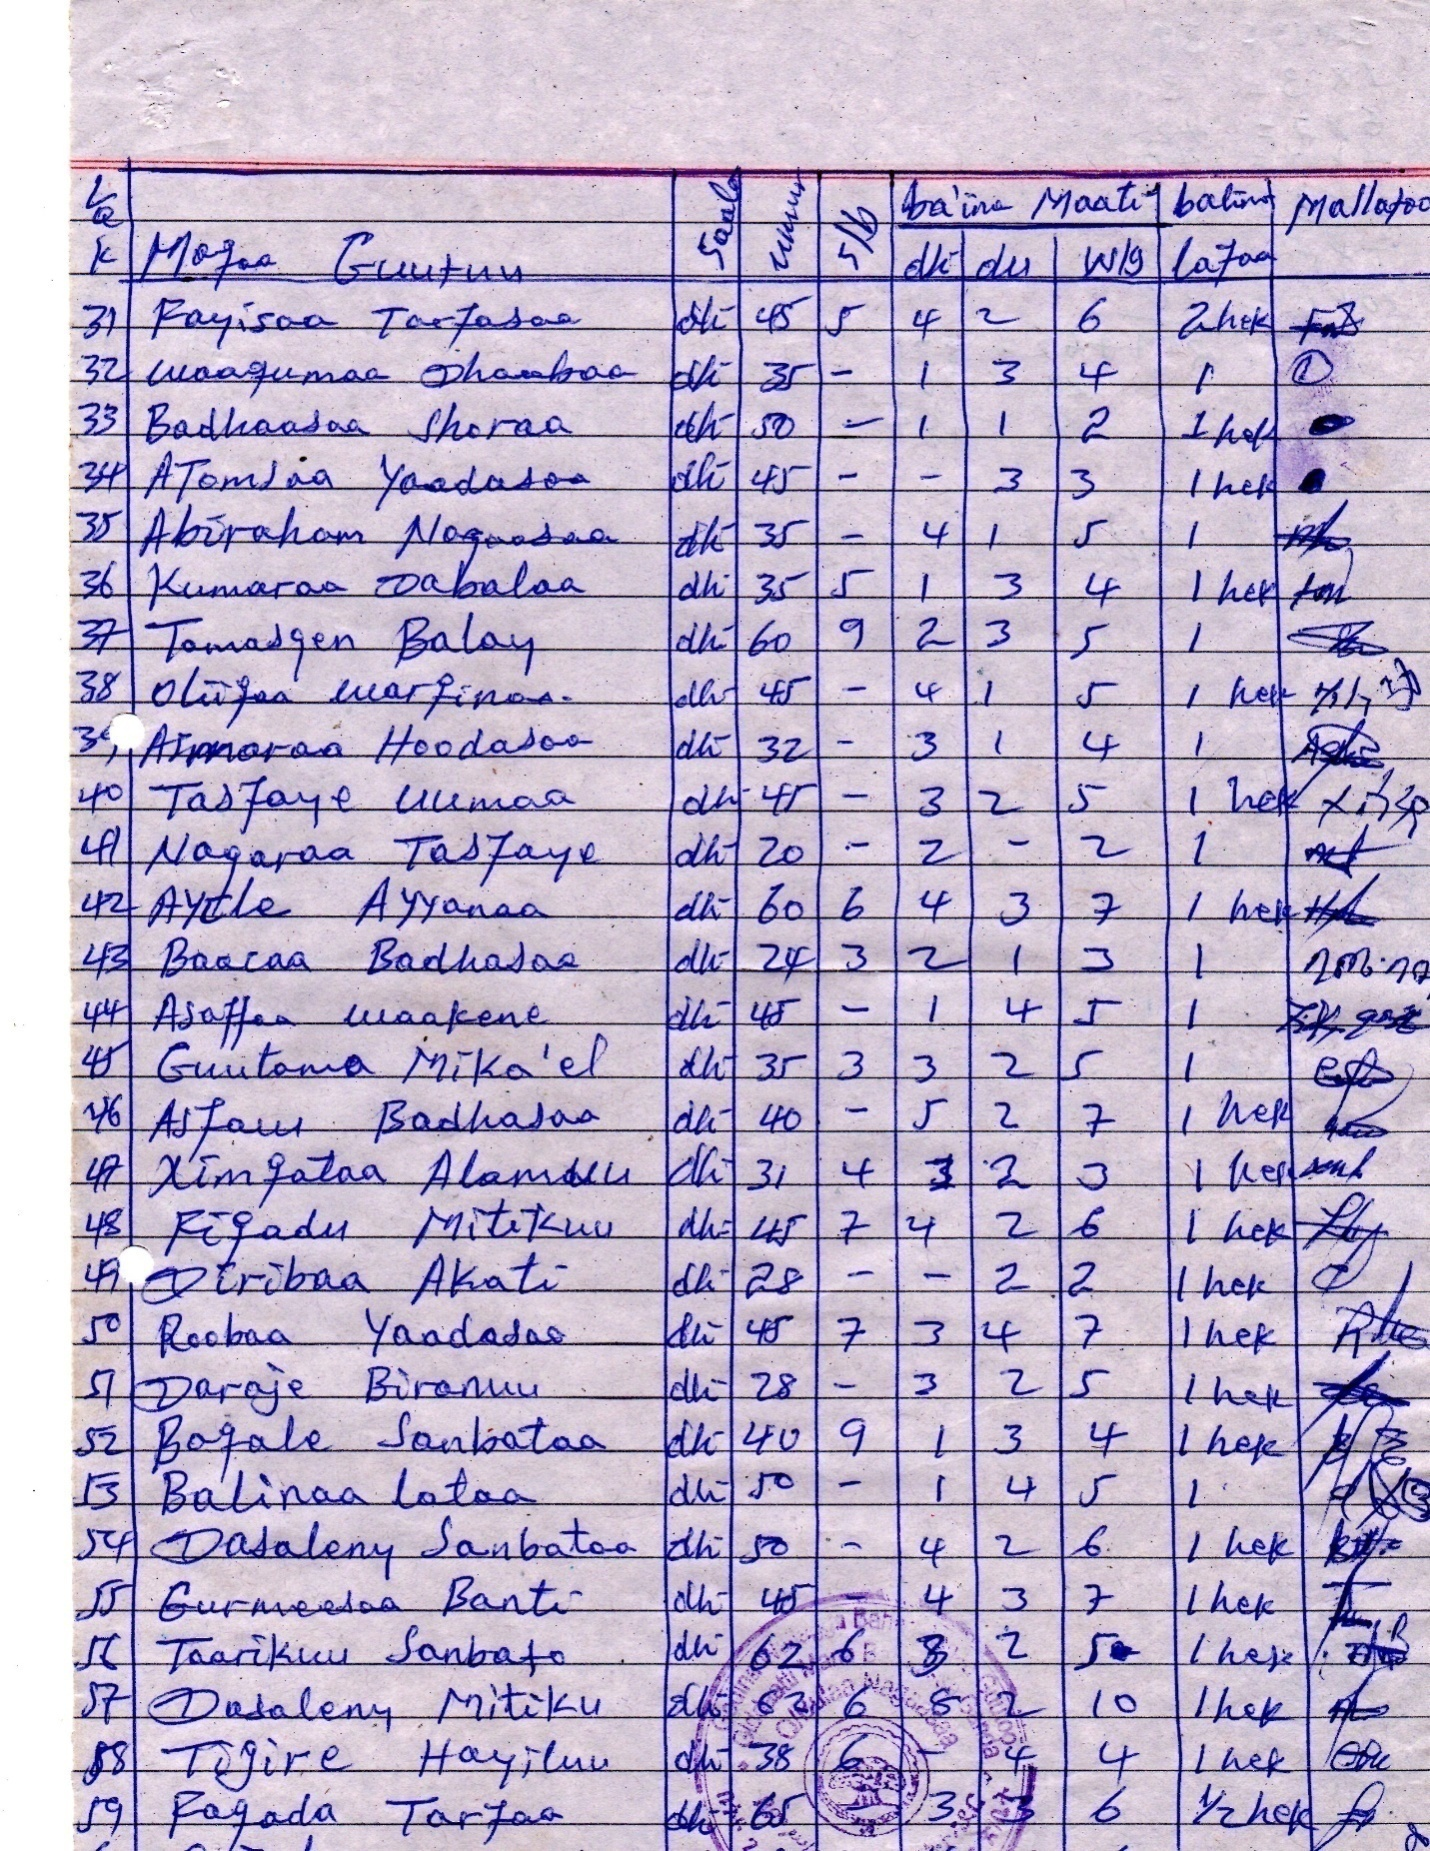 Lakk Maqaa Guutuu Saala umurii S/b ba'ina Maatii dhi du W/g balina lafaa Mallattoo
31 Fayisaa Tarfasaa dhi 45 5 4 2 6 2 hek
32 Waaqumaa Dhaabaa dhi 35 - 1 3 4 1
33 Badhaasaa Shoraa dhi 50 - 1 1 2 1 hek
34 ATomsaa Yaadasaa dhi 45 - - 3 3 1 hek
35 Abiraham Nagaasaa dhi 35 - 4 1 5 1
36 Kumaraa Dabalaa dhi 35 5 1 3 4 1 hek
37 Tamasgen Balay dhi 60 9 2 3 5 1
38 Oliiqaa Warqinaa dhi 45 - 4 1 5 1 hek
39 Almaraa Hoodasaa dhi 32 - 3 1 4 1
40 Tasfaye Uumaa dhi 45 - 3 2 5 1 hek
41 Nagaraa Tasfaye dhi 20 - 2 - 2 1
42 Ayele Ayyanaa dhi 60 6 4 3 7 1 hek
43 Baacaa Badhasaa dhi 24 3 2 1 3 1
44 Asaffaa Waakene dhi 45 - 1 4 5 1
45 Guutama Mika'el dhi 35 3 3 2 5 1
46 Asfaw Badhasaa dhi 40 - 5 2 7 1 hek
47 Ximqataa Alamuu dhi 31 4 3 2 3 1 hek
48 Fiqadu Mitikuu dhi 45 7 4 2 6 1 hek
49 Diribaa Akati dhi 28 - - 2 2 1 hek
50 Roobaa Yaadasaa dhi 45 7 3 4 7 1 hek
51 Daraje Biranuu dhi 28 - 3 2 5 1 hek
52 Baqale Sanbataa dhi 40 9 1 3 4 1 hek
53 Balinaa lataa dhi 50 - 1 4 5 1
54 Dasaleny Sanbataa dhi 50 - 4 2 6 1 hek
55 Gurmeesaa Banti dhi 45 - 4 3 7 1 hek
56 Taarikuu Sanbato dhi 62 6 3 2 5 1 hek
57 Dasaleny Mitiku dhi 63 6 8 2 10 1 hek
58 Tigire Hayiluu dhi 38 6 - 4 4 1 hek
59 Faqada Tarfaa dhi 65 3 3 6 1/2 hek